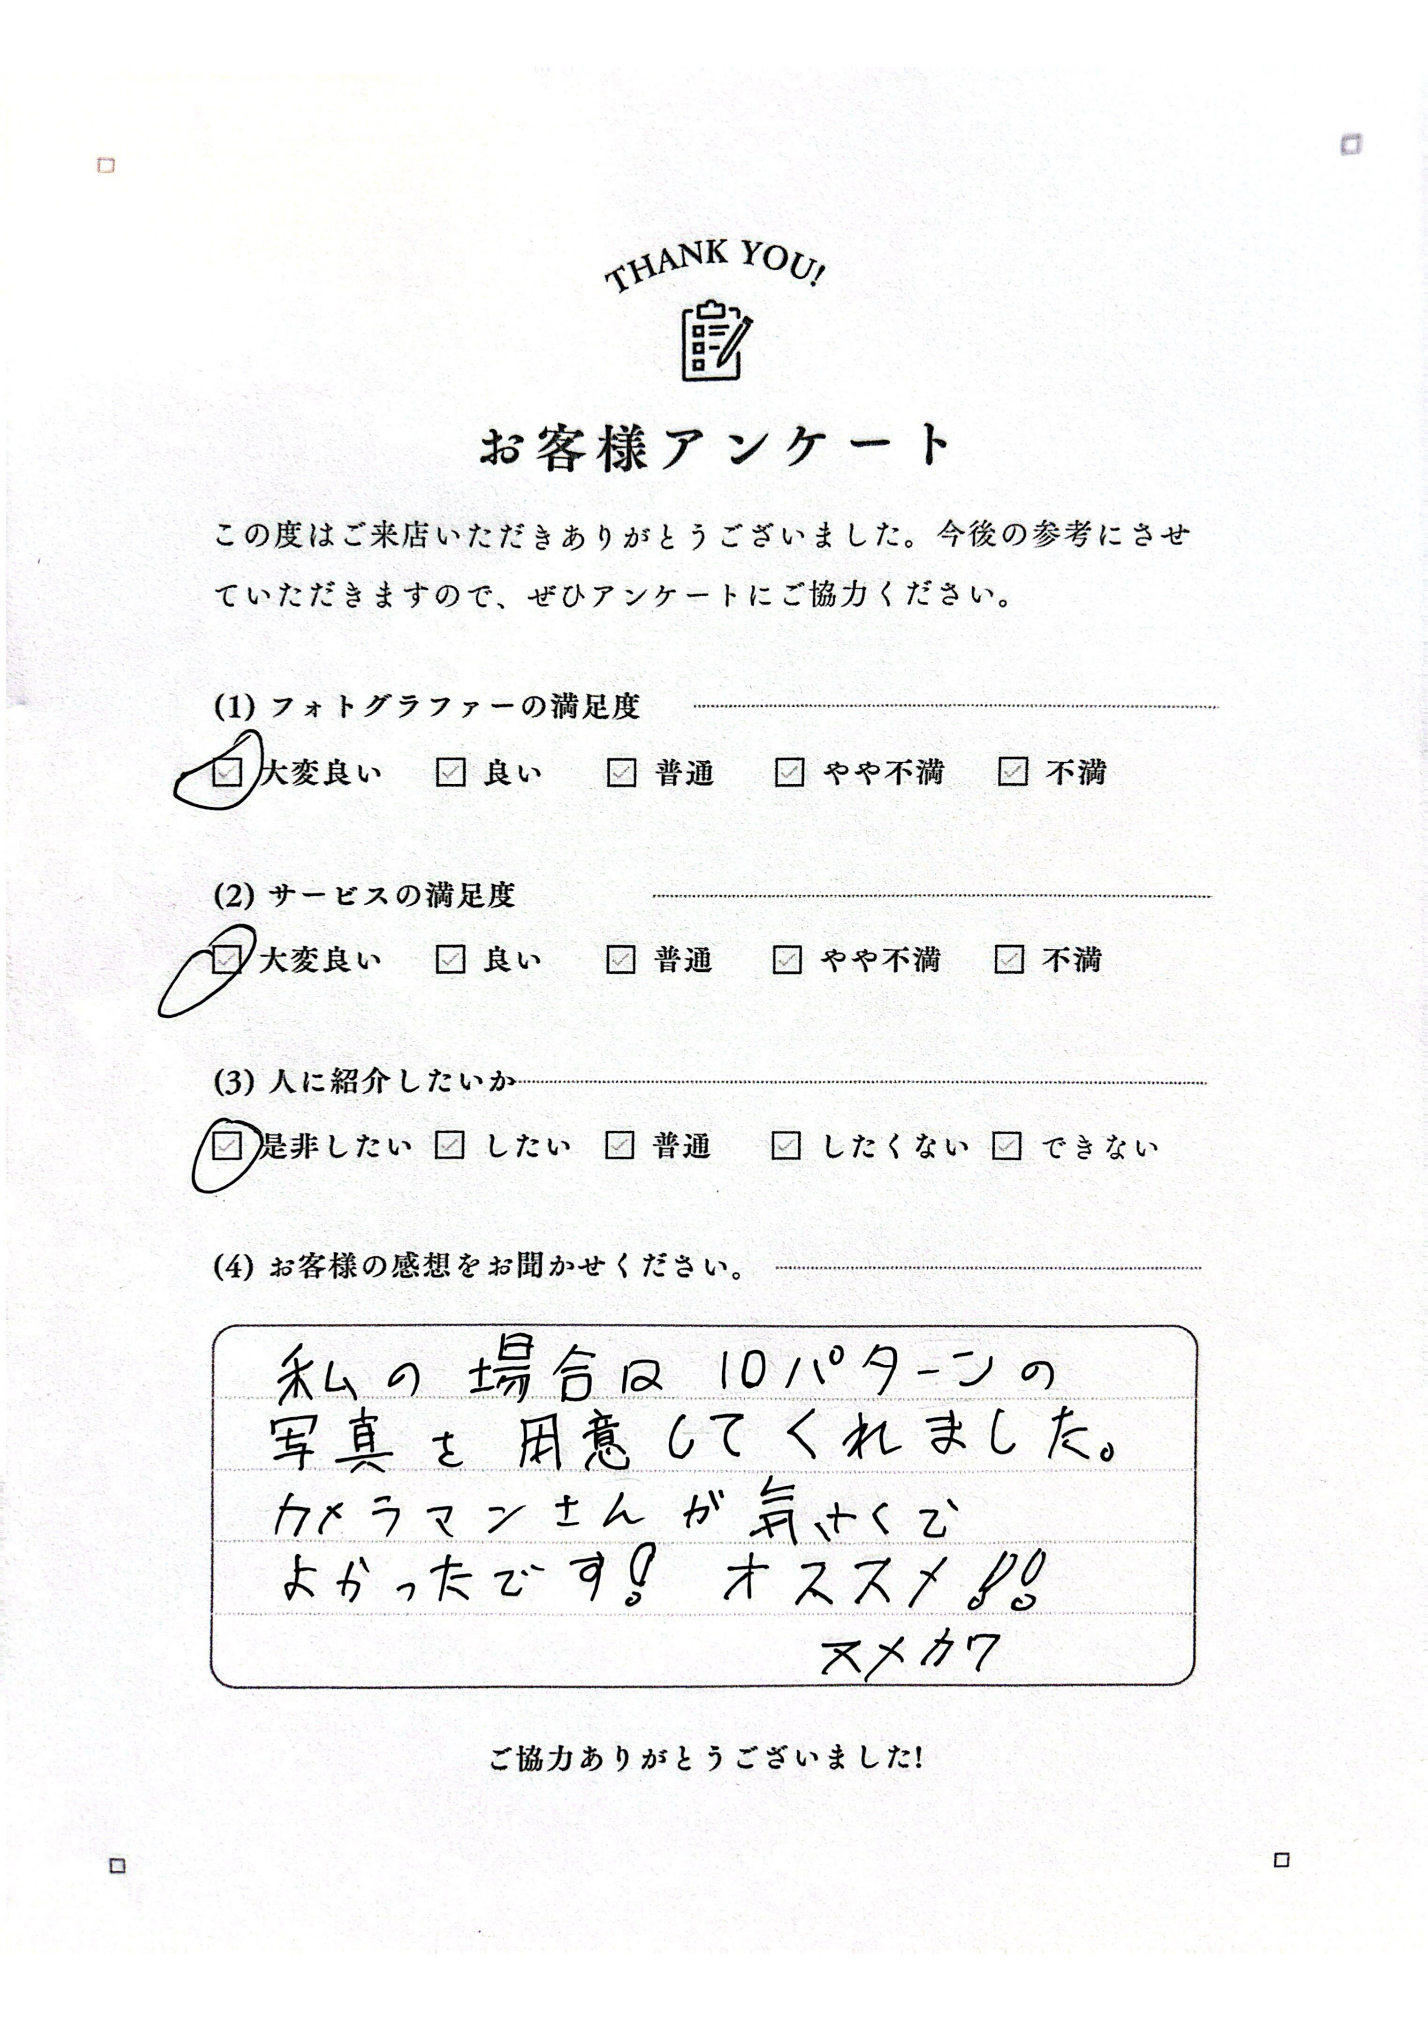 THANK YOU!
お客様アンケート
この度はご来店いただきありがとうございました。今後の参考にさせ
ていただきますので、ぜひアンケートにご協力ください。
(1) フォトグラファーの満足度
大変良い 良い 普通 やや不満 不満
(2) サービスの満足度
大変良い 良い 普通 やや不満 不満
(3) 人に紹介したいか
是非したい したい 普通 したくない できない
(4) お客様の感想をお聞かせください。
私の場合は10パターンの
写真を用意してくれました。
カメラマンさんが気さくで
よかったです! オススメ!!
ヌメカワ
ご協力ありがとうございました!